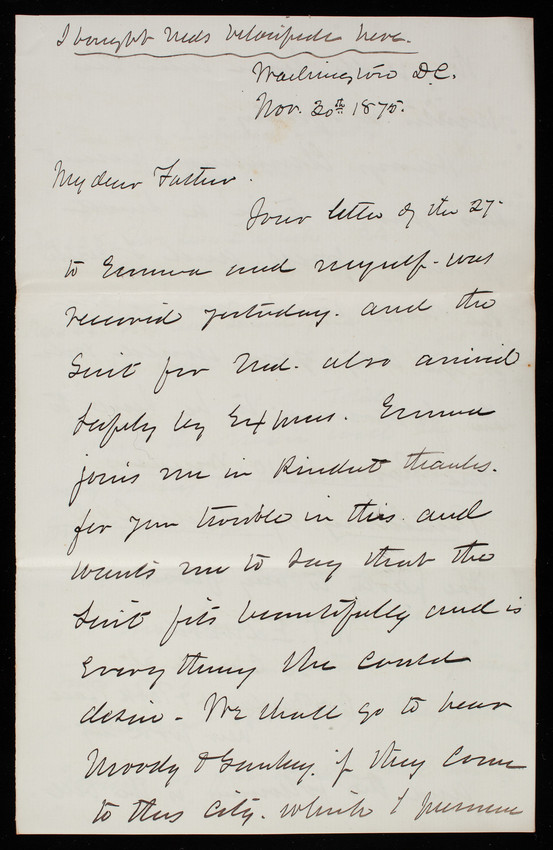 I bought Neds Velocipede here.
Washington D.C.
Nov. 30th 1875.
My dear Father.
Your letter of the 27th
to Emma and myself. was
received yesterday. and the
Suit for Ned. also arrived
safely by Express. Emma
joins me in kindest thanks.
for your trouble in this. and
wants me to say that the
Suit fits beautifully and is
everything she could
desire. We shall go to hear
Moody & Sankey. if they come
to this city. which I presume